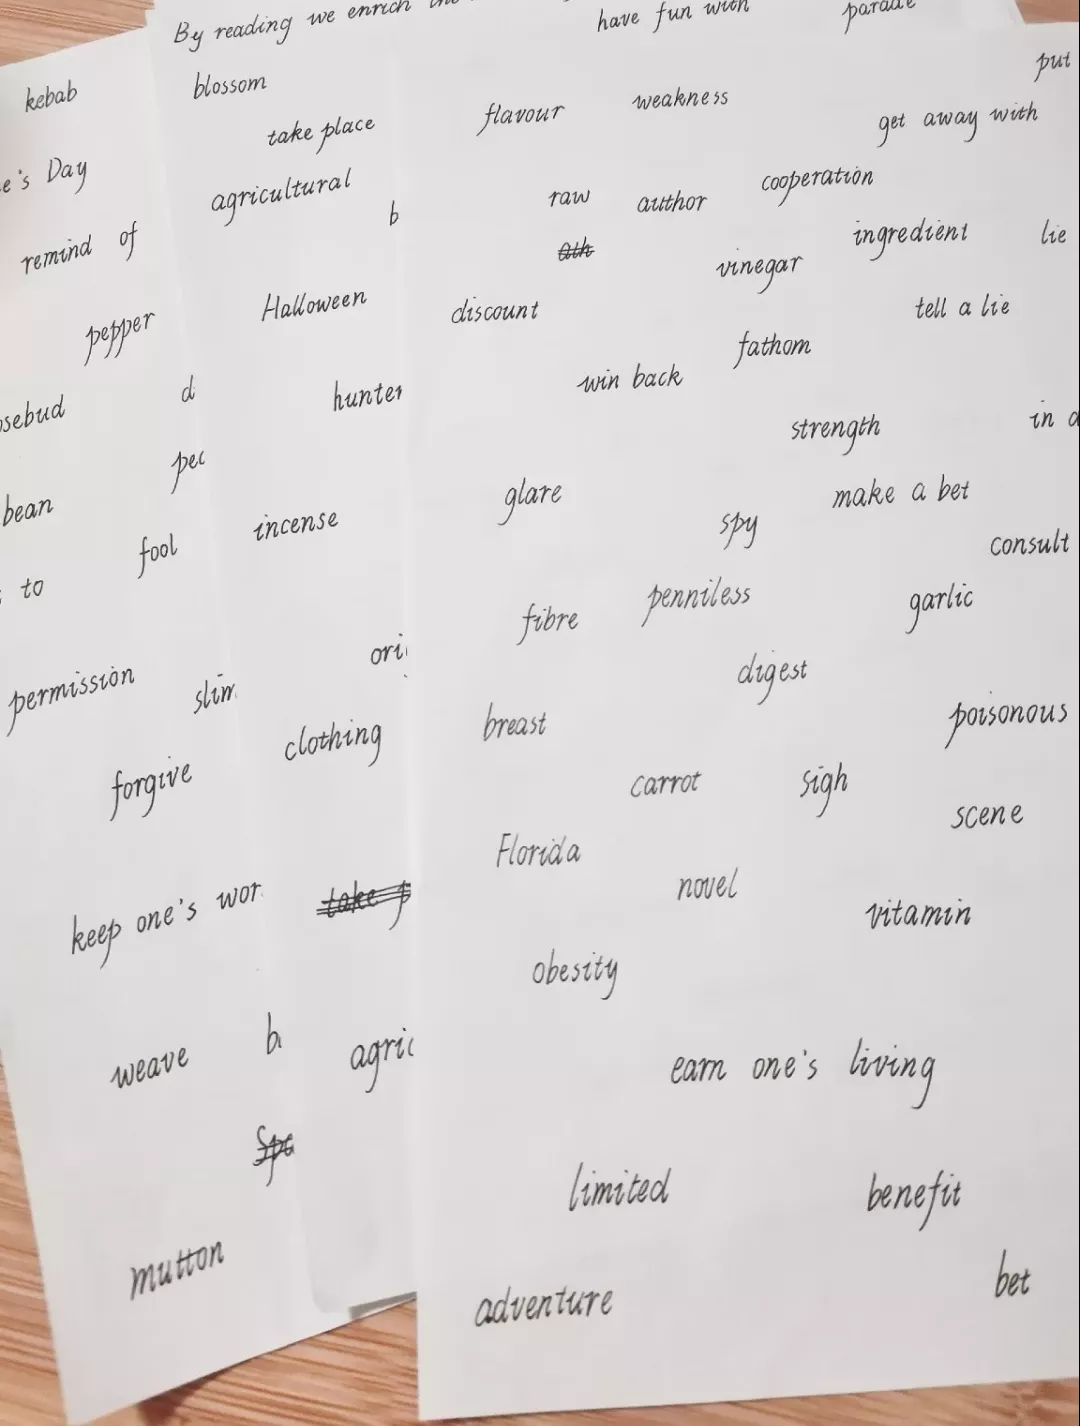 By reading we enrich
have fun with
parade
kebab
blossom
take place
e's Day
agricultural
remind of
b
pepper
Halloween
sebud
d
hunter
bean
pec
to
fool
incense
permission
slim
ori
forgive
clothing
keep one's wor
take p
weave
b
agric
Spe
mutton
put
flavour
weakness
get away with
raw
author
cooperation
ath
vinegar
ingredient
lie
discount
tell a lie
fathom
win back
strength
in a
glare
make a bet
spy
consult
fibre
penniless
garlic
digest
breast
poisonous
carrot
sigh
scene
Florida
novel
vitamin
obesity
earn one's living
limited
benefit
adventure
bet